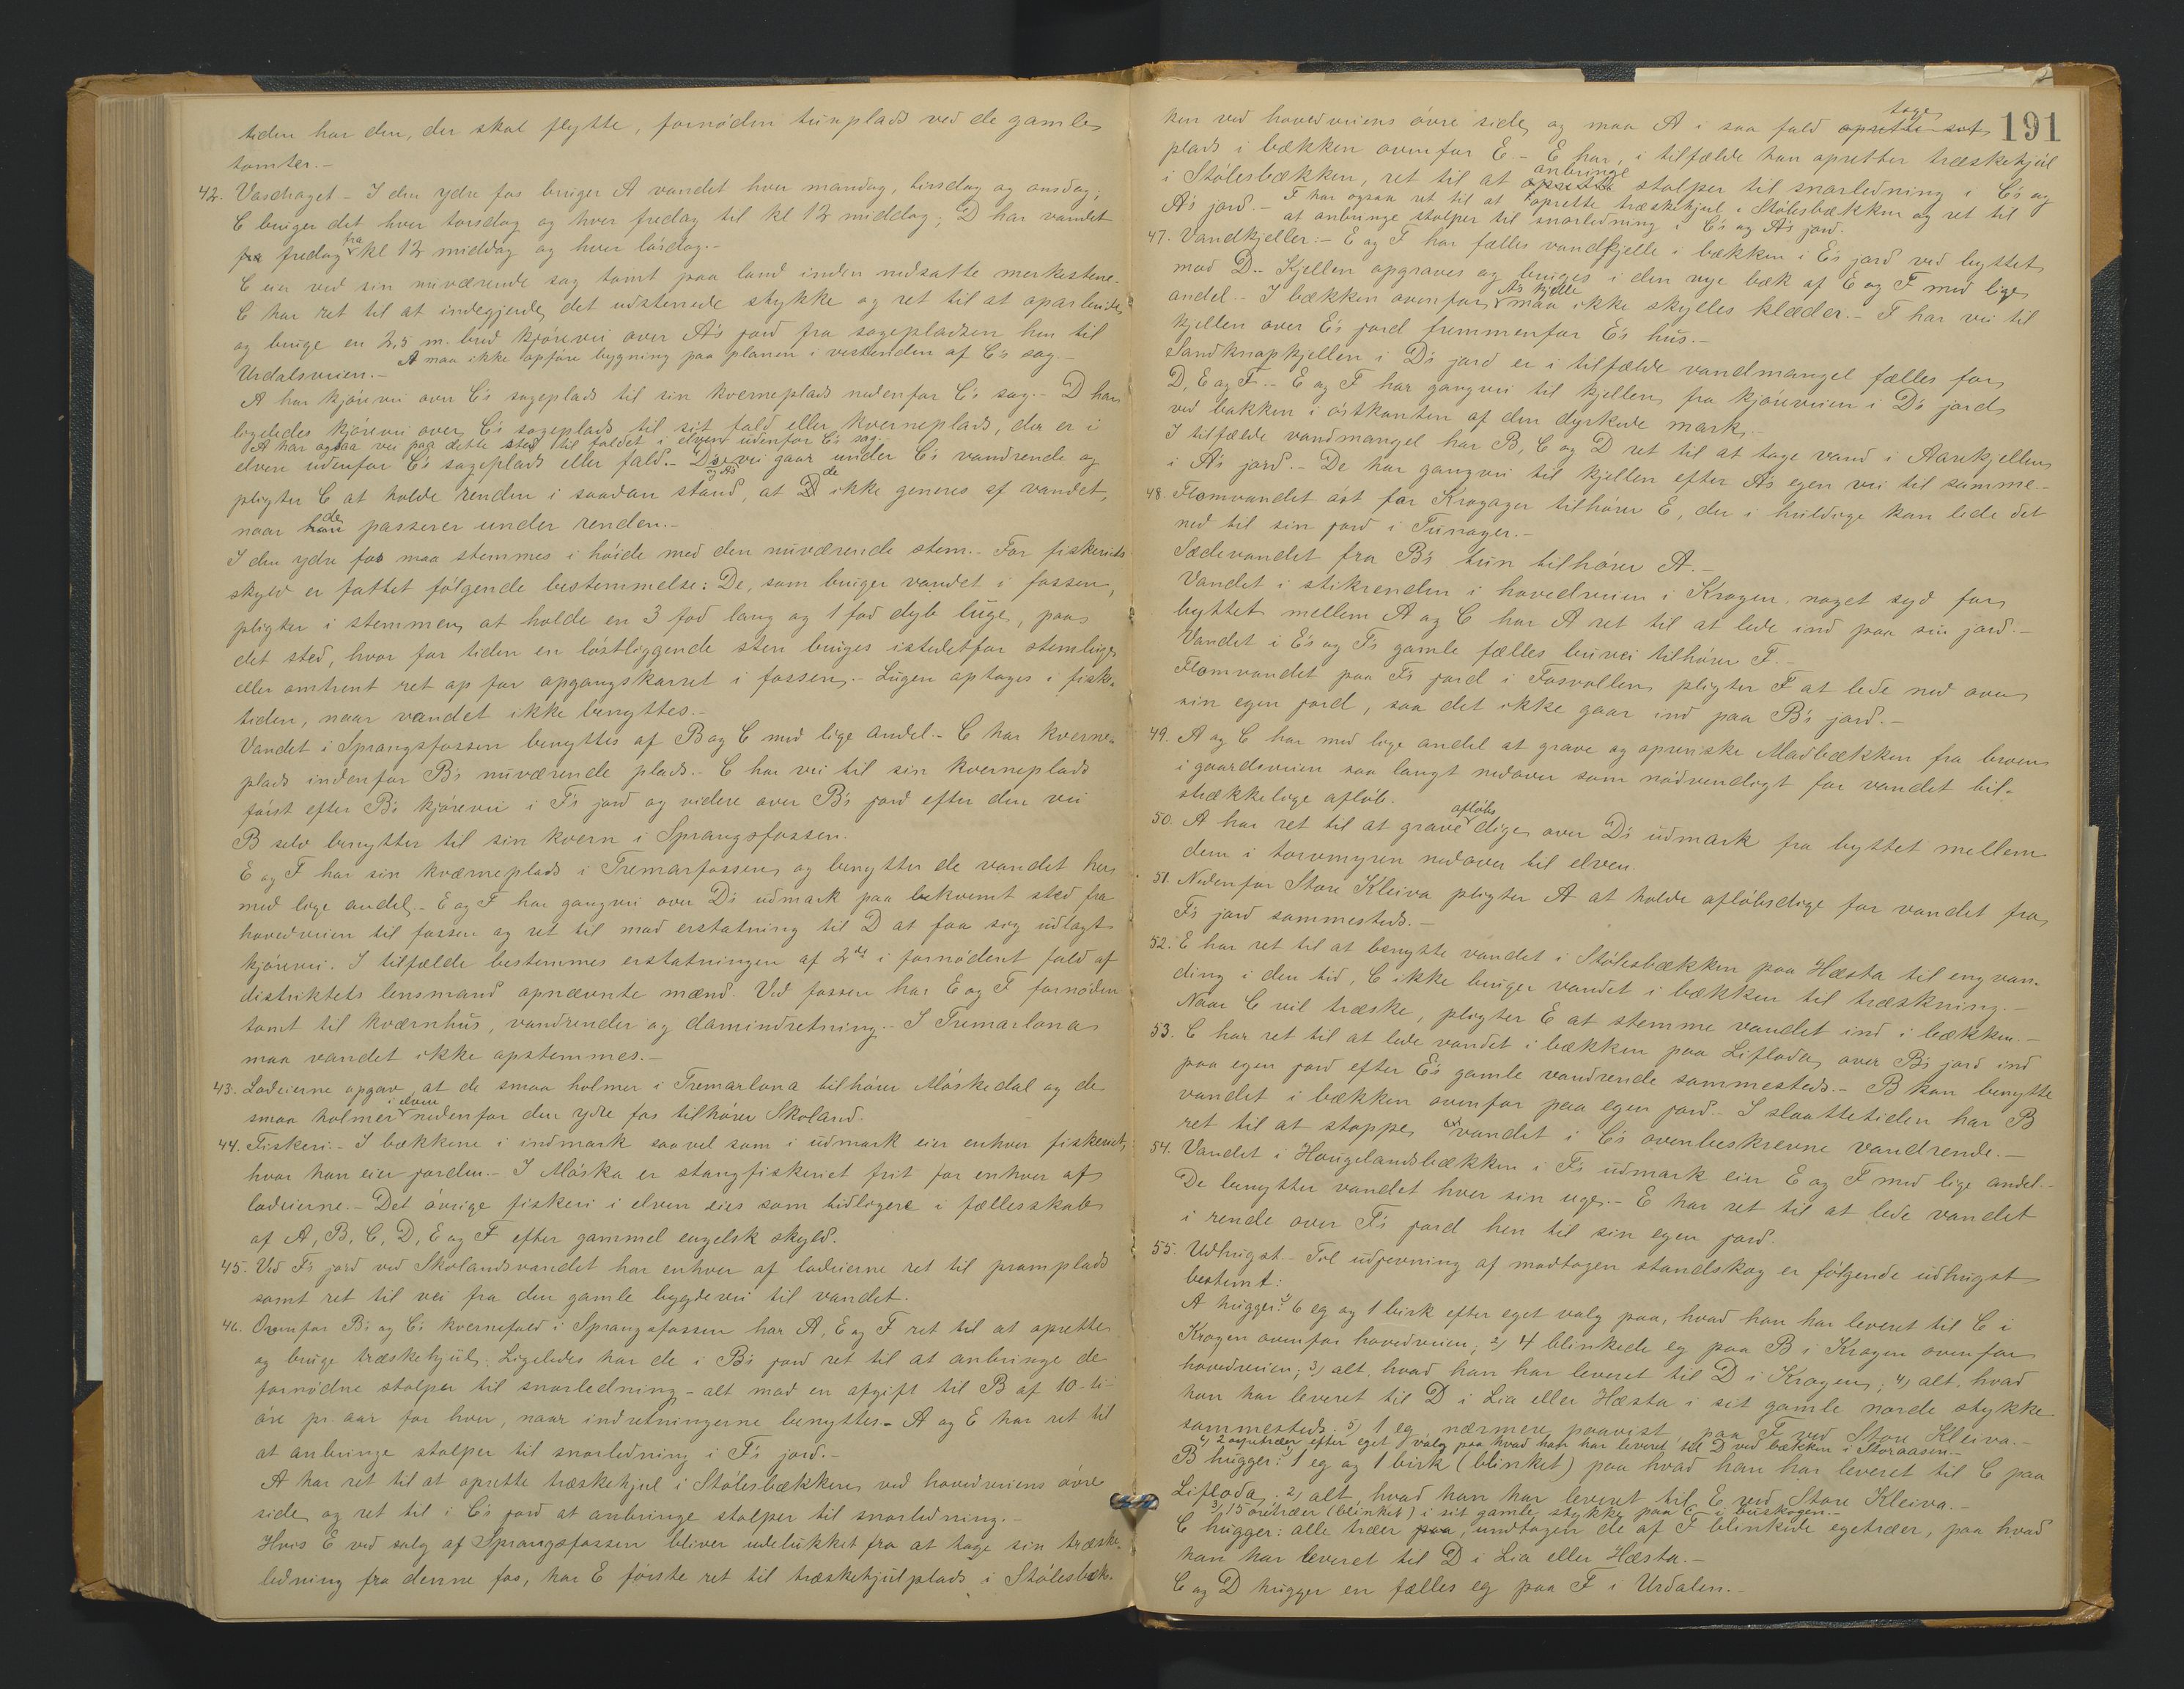 tiden har den, der skal flytte, fornöden tunplads ved de gamle
tomter.-
42. Vasdraget - I den ydre fos bruger A vandet hver mandag, tirsdag og onsdag;
C bruger det hver torsdag og hver fredag til kl 12 middag; D har vandet
fra fredag fra kl 12 middag og hver lördag.-
C eier ved sin nuværende sag tomt paa land inden nedsatte merkestene.
C har ret til at indegjerde det udstenede stykke og ret til at oparbeide
og bruge en 2,5 m. bred kjörevei over A's jord fra sagepladsen hen til
Urdalsveien.- A maa ikke opföre bygning paa planen i vestenden af C's sag.-
A har kjörevei over C's sageplads til sin kverneplads nedenfor C's sag.- D har
ligeledes kjörevei over C's sageplads til sit fald eller kverneplads, der er i
A har ogsaa vei paa dette sted til faldet i elven udenfor C's sag.
elven udenfor C's sageplads eller fald.- D's og A's vei gaar under C's vandrende og
pligter C at holde renden i saadan stand, at D de ikke generes af vandet,
naar han de passerer under renden.-
I den ydre fos maa stemmes i höide med den nuværende stem.- For fiskeriets
skyld er fattet fölgende bestemmelse: De, som bruger vandet i fossen,
pligter i stemmen at holde en 3 fod lang og 1 fod dyb luge, paa
det sted, hvor for tiden en löstliggende sten bruges istedetfor stemluge
eller omtrent ret op for opgangskarret i fossen.- Lugen optages i fiske-
tiden, naar vandet ikke benyttes.-
Vandet i Sprangsfossen benyttes af B og C med lige andel.- C har kverne-
plads indenfor B's nuværende plads.- C har vei til sin kverneplads
först efter B's kjörevei i F's jord og videre over B's jord efter den vei
B selv benytter til sin kvern i Sprangsfossen.
E og F har sin kværneplads i Tremarfossen og benytter de vandet her
med lige andel.- E og F har gangvei over D's udmark paa bekvemt sted fra
hovedveien til fossen og ret til mod erstatning til D at faa sig udlagt
kjörevei. I tilfælde bestemmes erstatningen af 2de i fornödent fald af
distriktets lensmand opnævnte mænd. Ved fossen har E og F fornöden
tomt til kværnhus, vandrender og damindretning.- I Tremarlona
maa vandet ikke opstemmes.-
43. Lodeierne opgav, at de smaa holmer i Tremarlona tilhörer Möskedal og de
smaa holmer i elven nedenfor den ydre fos tilhörer Skoland.
44. Fiskeri.- I bækkene i indmark saavel som i udmark eier enhver fiskeriet,
hvor han eier jorden.- I Möska er stangfiskeriet frit for enhver af
lodeierne.- Det övrige fiskeri i elven eies som tidligere i fællesskab
af A, B, C, D, E og F efter gammel engelsk skyld.
45. Ved F's jord ved Skolandsvandet har enhver af lodeierne ret til pramplads
samt ret til vei fra den gamle bygdevei til vandet.
46. Ovenfor B's og C's kvernefald i Sprangsfossen har A, E og F ret til at oprette
og bruge træskehjul. Ligeledes har de i B's jord ret til at anbringe de
fornödne stolper til snorledning - alt mod en afgift til B af 10 - ti -
öre pr. aar for hver, naar indretningerne benyttes.- A og E har ret til
at anbringe stolper til snorledning i F's jord.-
A har ret til at oprette træskehjul i Stölesbækken ved hovedveiens övre
side og ret til i C's jord at anbringe stolper til snorledning.-
Hvis E ved salg af Sprangsfossen bliver udelukket fra at tage sin træske-
ledning fra denne fos, har E förste ret til træskehjulplads i Stölesbæk-
191
ken ved hovedveiens övre side og maa A i saa fald oprette sit tage
plads i bækken ovenfor E.- E har, i tilfælde han opretter træskehjul
i Stölesbækken, ret til at opsette anbringe stolper til snorledning i C's og
A's jord.- F har ogsaa ret til at oprette træskehjul i Stölesbækken og ret til
at anbringe stolper til snorledning i C's og A's jord.
47. Vandkjeller:- E og F har fælles vandkjelle i bækken i E's jord ved byttet
mod D.- Kjellen opgraves og bruges i den nye bæk af E og F med lige
andel.- I bækken ovenfor A's kjelle maa ikke skylles klæder.- F har vei til
kjellen over E's jord fremmenfor E's hus.-
Sandknapkjellen i D's jord er i tilfælde vandmangel fælles for
D, E og F.- E og F har gangvei til kjellen fra kjöreveien i D's jord
ved bakken i östkanten af den dyrkede mark.-
I tilfælde vandmangel har B, C og D ret til at tage vand i Aarekjellen
i A's jord.- De har gangvei til kjellen efter A's egen vei til samme.-
48. Flomvandet öst for Kragager tilhörer E, der i huldige kan lede det
ned til sin jord i Tunager.-
Sædevandet fra B's tun tilhörer A.-
Vandet i stikrenden i hovedveien i Krogen, noget syd for
byttet mellem A og C har A ret til at lede ind paa sin jord.-
Vandet i E's og F's gamle fælles buvei tilhörer F.-
Flomvandet paa F's jord i Fosvollen pligter F at lede ned over
sin egen jord, saa det ikke gaar ind paa B's jord.-
49. A og C har med lige andel at grave og oprenske Madbækken fra broen
i gaardsveien saa langt nedover som nödvendigt for vandet til-
strækkelige aflöb.
50. A har ret til at grave aflöbs dige over D's udmark fra byttet mellem
dem i torvmyren nedover til elven.
51. Nedenfor Store Kleiva pligter A at holde aflöbsdige for vandet fra
F's jord sammesteds.-
52. E har ret til at benytte vandet i Stölesbækken paa Hæsta til engvan-
ding i den tid, C ikke bruger vandet i bækken til træskning.-
Naar C vil træske, pligter E at stemme vandet ind i bækken.-
53. C har ret til at lede vandet i bækken paa Lifloda over B's jord ind
paa egen jord efter E's gamle vandrende sammesteds.- B kan benytte
vandet i bækken ovenfor paa egen jord.- I slaattetiden har B
ret til at stoppe vandet i C's ovenbeskrevne vandrende.-
54. Vandet i Hougelandsbækken i F's udmark eier E og F med lige andel.-
De benytter vandet hver sin uge.- E har ret til at lede vandet
i rende over F's jord hen til sin egen jord.
55. Udhugst.- Til udjevning af modtagen standskog er fölgende udhugst
bestemt:
A hugger: 1) 6 eg og 1 birk efter eget valg paa, hvad han har leveret til C i
Krogen ovenfor hovedveien; 2) 4 blinkede eg paa B i Krogen ovenfor
hovedveien; 3) alt, hvad han har leveret til D i Krogen; 4) alt, hvad
han har leveret til D i Lia eller Hæsta i sit gamle nordre stykke
sammesteds. 5) 1 eg, nærmere paavist, paa F ved Store Kleiva.-
efter eget valg paa hvad han har leveret til D ved bækken i Storaasen.-
B hugger: 1 eg og 1 birk (blinket) paa hvad han har leveret til C paa
Lifloda. 2) alt, hvad han har leveret til E ved Store Kleiva.-
3) 15 oretræer (blinket) i sit gamle stykke paa C i buskogen.-
C hugger: alle træer paa, undtagen de af F blinkede egetræer, paa hvad
han har leveret til D i Lia eller Hæsta.-
C og D hugger en fælles eg paa F i Urdalen.-